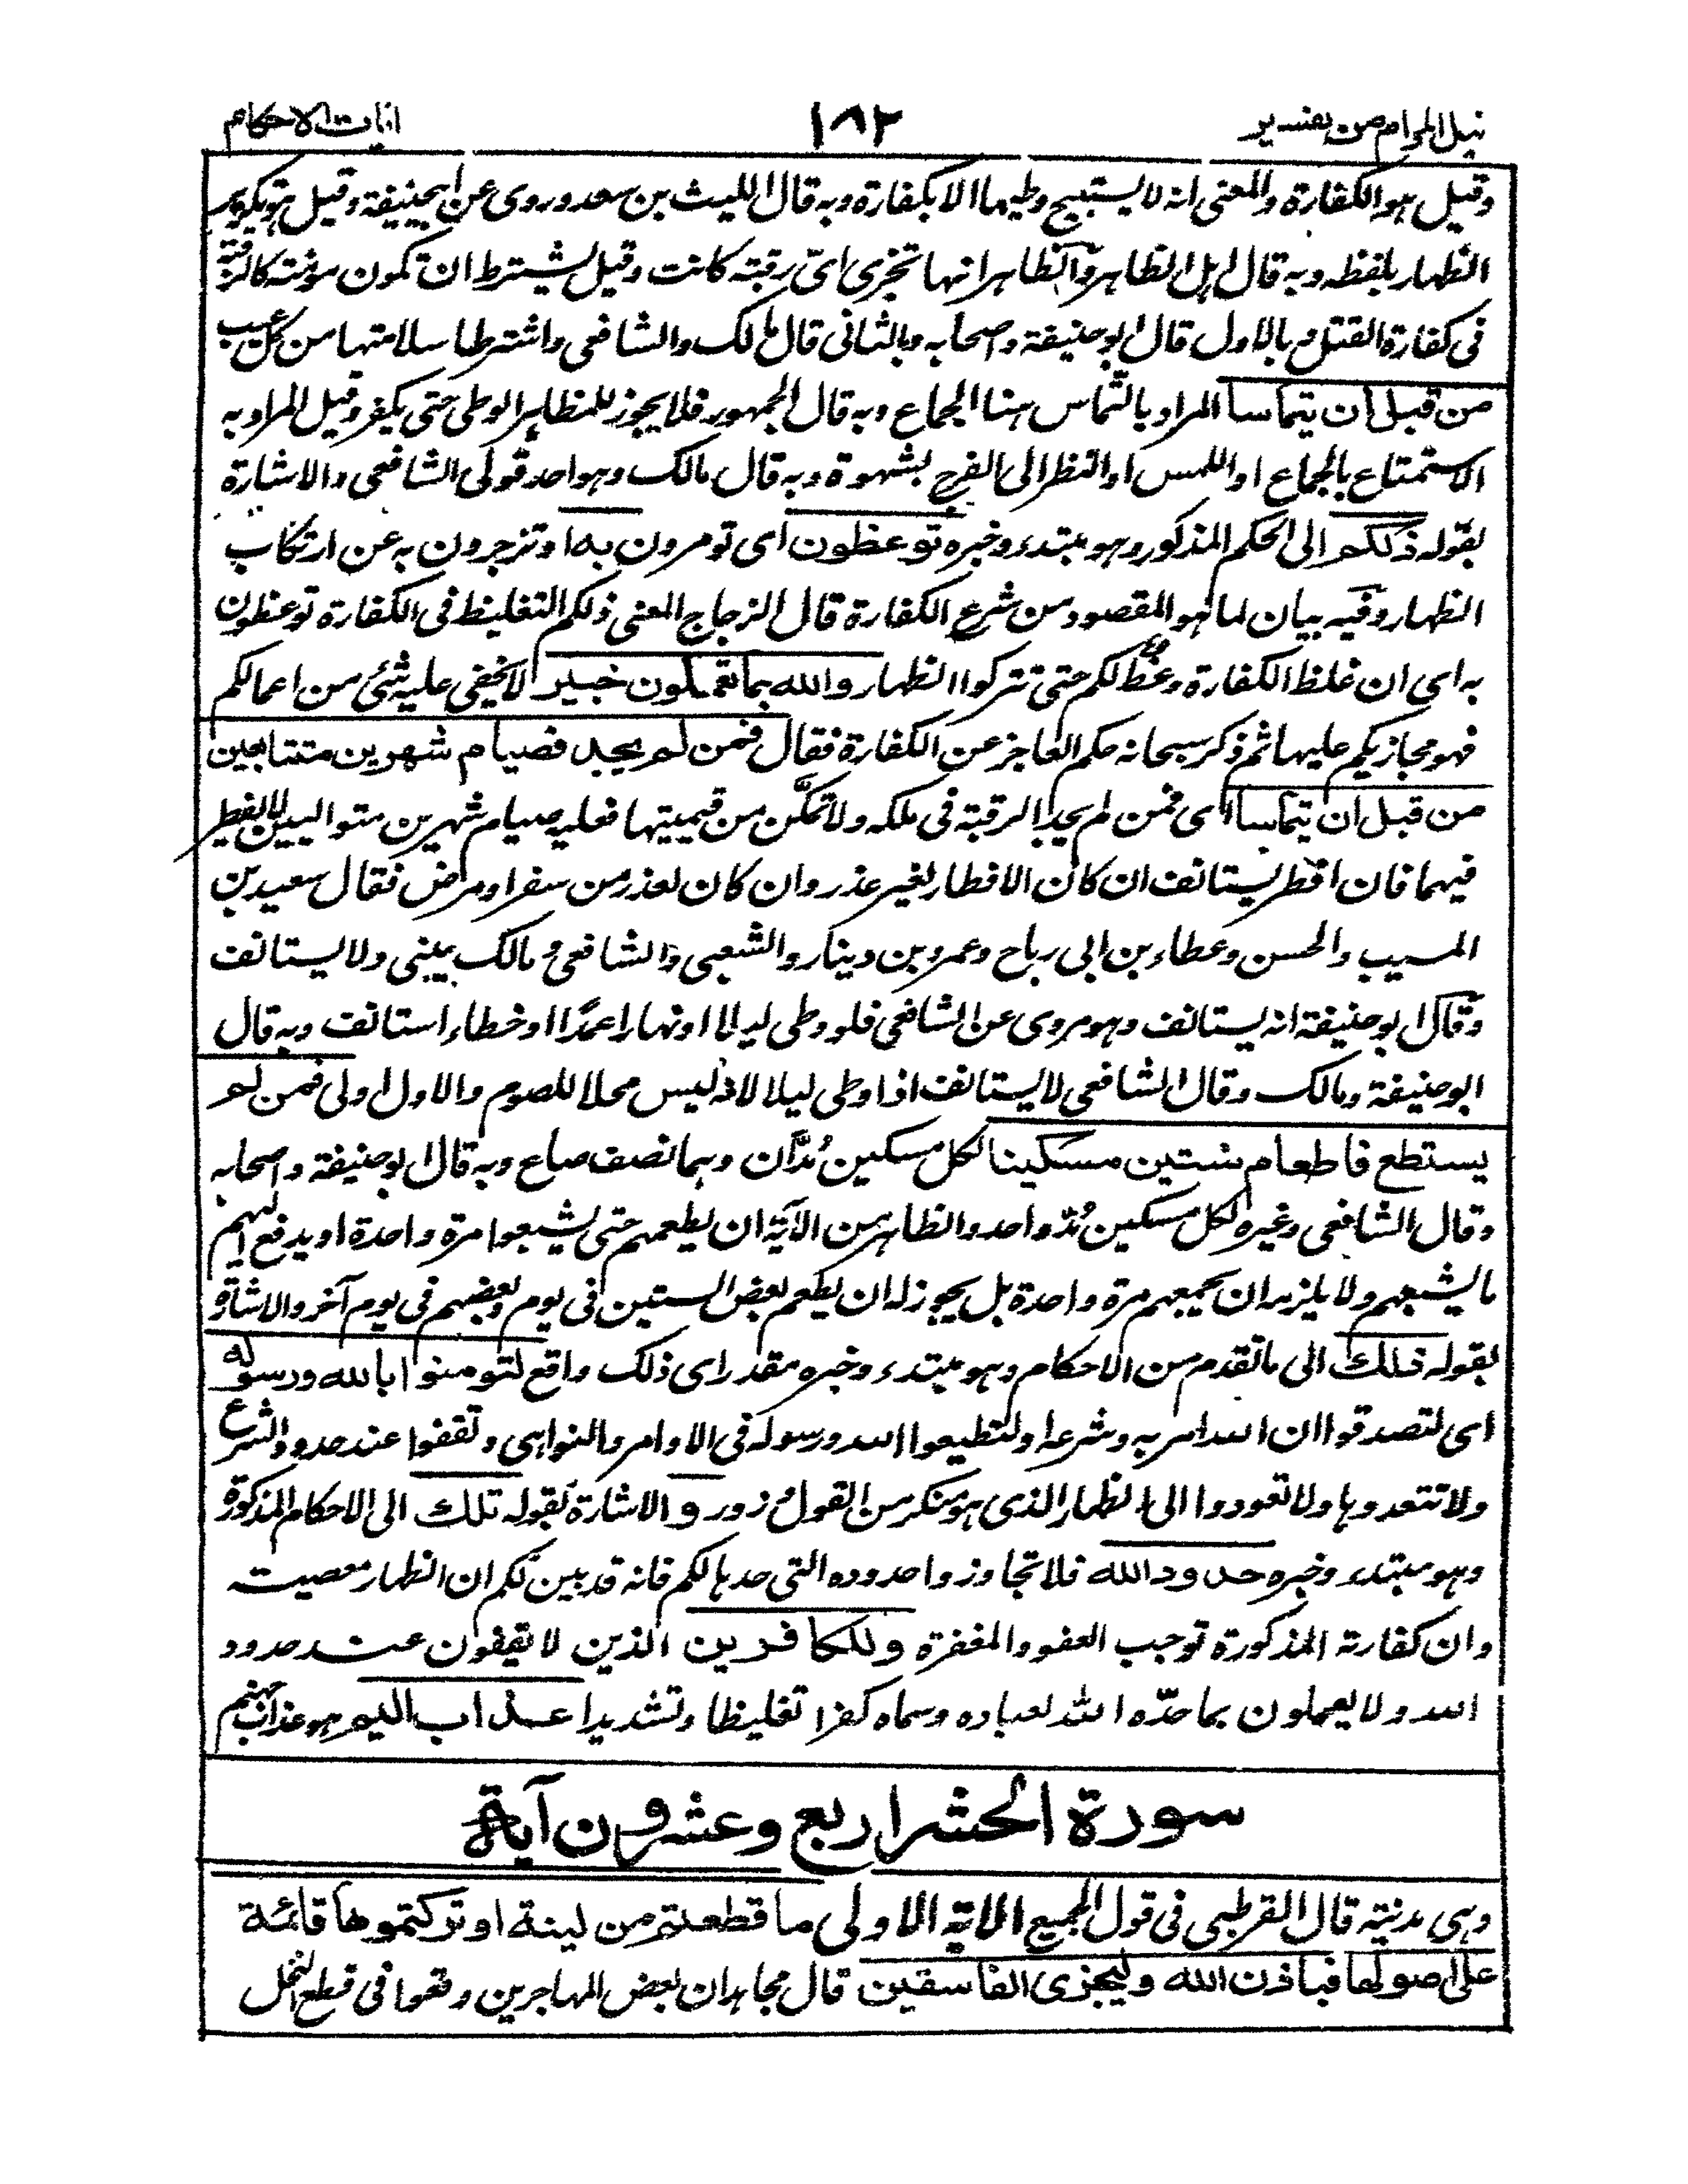 نيل المرام من تفسير
١٨٢
اٰيات الاحكام
وقيل هو الكفارة والمعنى انه لا يستبيح وطيها الا بكفارة وبه قال الليث بن سعد وروى عن ابيحنيفة وقيل هو تكرير
الظهار بلفظه وبه قال اهل الظاهر والظاهر انها تجزى اىّ رقبته كانت وقيل يشترط ان تكون مؤمنته كالرقبة
فى كفارة القتل وبالاول قال ابوحنيفة واصحابه وبالثانى قال مالك والشافعى واشترطا سلامتها من كل عيب
من قبل ان يتماسا المراد بالتّماس هنا الجماع وبه قال الجمهور فلا يجوز للمظاهر الوطى حتى يكفر وقيل المراد به
الاستمتاع بالجماع او اللمس او النظر الى الفرج بشهوة وبه قال مالك وهو احد قولى الشافعى والاشارة
بقوله ذلكم الى الحكم المذكور وهو مبتدء وخبره توعظون اى تومرون به او تنزجرون به عن ارتكاب
الظهار وفيه بيان لما هو المقصود من شرع الكفارة قال الزجاج المعنى ذلكم التغليظ فى الكفارة توعظون
به اى ان غلظ الكفارة وعظ لكم حتى تتركوا الظهار والله بما تعملون خبير لا يخفى عليه شئ من اعمالكم
فهو مجازيكم عليها ثم ذكر سبحانه حكم العاجز عن الكفارة فقال فمن لم يجد فصيام شهرين متتابعين
من قبل ان يتماسا اى فمن لم يجد الرقبة فى ملكه ولا تمكّن من قيمتها فعليه صيام شهرين متواليين لا يفطر
فيهما فان افطر يستانف ان كان الافطار لغير عذر وان كان لعذر من سفر او مرض فقال سعيد بن
المسيب والحسن وعطاء بن ابى رباح وعمرو بن دينار والشعبى والشافعى ومالك يبنى ولا يستانف
وقال ابوحنيفة انه يستانف وهو مروى عن الشافعى فلو وطى ليلا او نهارا عمدًا او خطاء استانف وبه قال
ابوحنيفة ومالك وقال الشافعى لا يستانف اذا وطى ليلا لانه ليس محلا للصوم والاول اولى فمن لم
يستطع فاطعام ستين مسكينا لكل مسكين مُدّان وهما نصف صاع وبه قال ابوحنيفة واصحابه
وقال الشافعى وغيره لكل مسكين مُدّ واحد والظاهر من الآية ان يطعمهم حتى يشبعوا مرة واحدة او يدفع اليهم
ما يشبعهم ولا يلزمه ان يجمعهم مرة واحدة بل يجوز له ان يطعم بعض الستين فى يوم وبعضهم فى يوم آخر والاشارة
بقوله ذلك الى ما تقدم من الاحكام وهو مبتدء وخبره مقدر اى ذلك واقع لتومنوا بالله ورسوله
اى لتصدقوا ان الله امر به وشرعه او لتطيعوا الله ورسوله فى الاوامر والنواهى وتقفوا عند حدود الشرع
ولا تتعدوها ولا تعودوا الى الظهار الذى هو منكر من القول وزور و الاشارة بقوله تلك الى الاحكام المذكورة
وهو مبتدء وخبره حدود الله فلا تجاوزوا حدوده التى حدها لكم فانه قد بين لكم ان الظهار معصيته
وان كفارته المذكورة توجب العفو والمغفرة وللكافرين الذين لا يقفون عند حدود
الله ولا يعملون بما حدّه الله لعباده وسماه كفرا تغليظا وتشديدا عذاب اليم هو عذاب جهنم
سورة الحشر اربع وعشرون آية
وهى مدنيته قال القرطبى فى قول الجميع الاية الاولى ما قطعتم من لينة او تركتموها قائمة
على اصولها فباذن الله وليجزى الفاسقين قال مجاهد ان بعض المهاجرين وقعوا فى قطع النخل